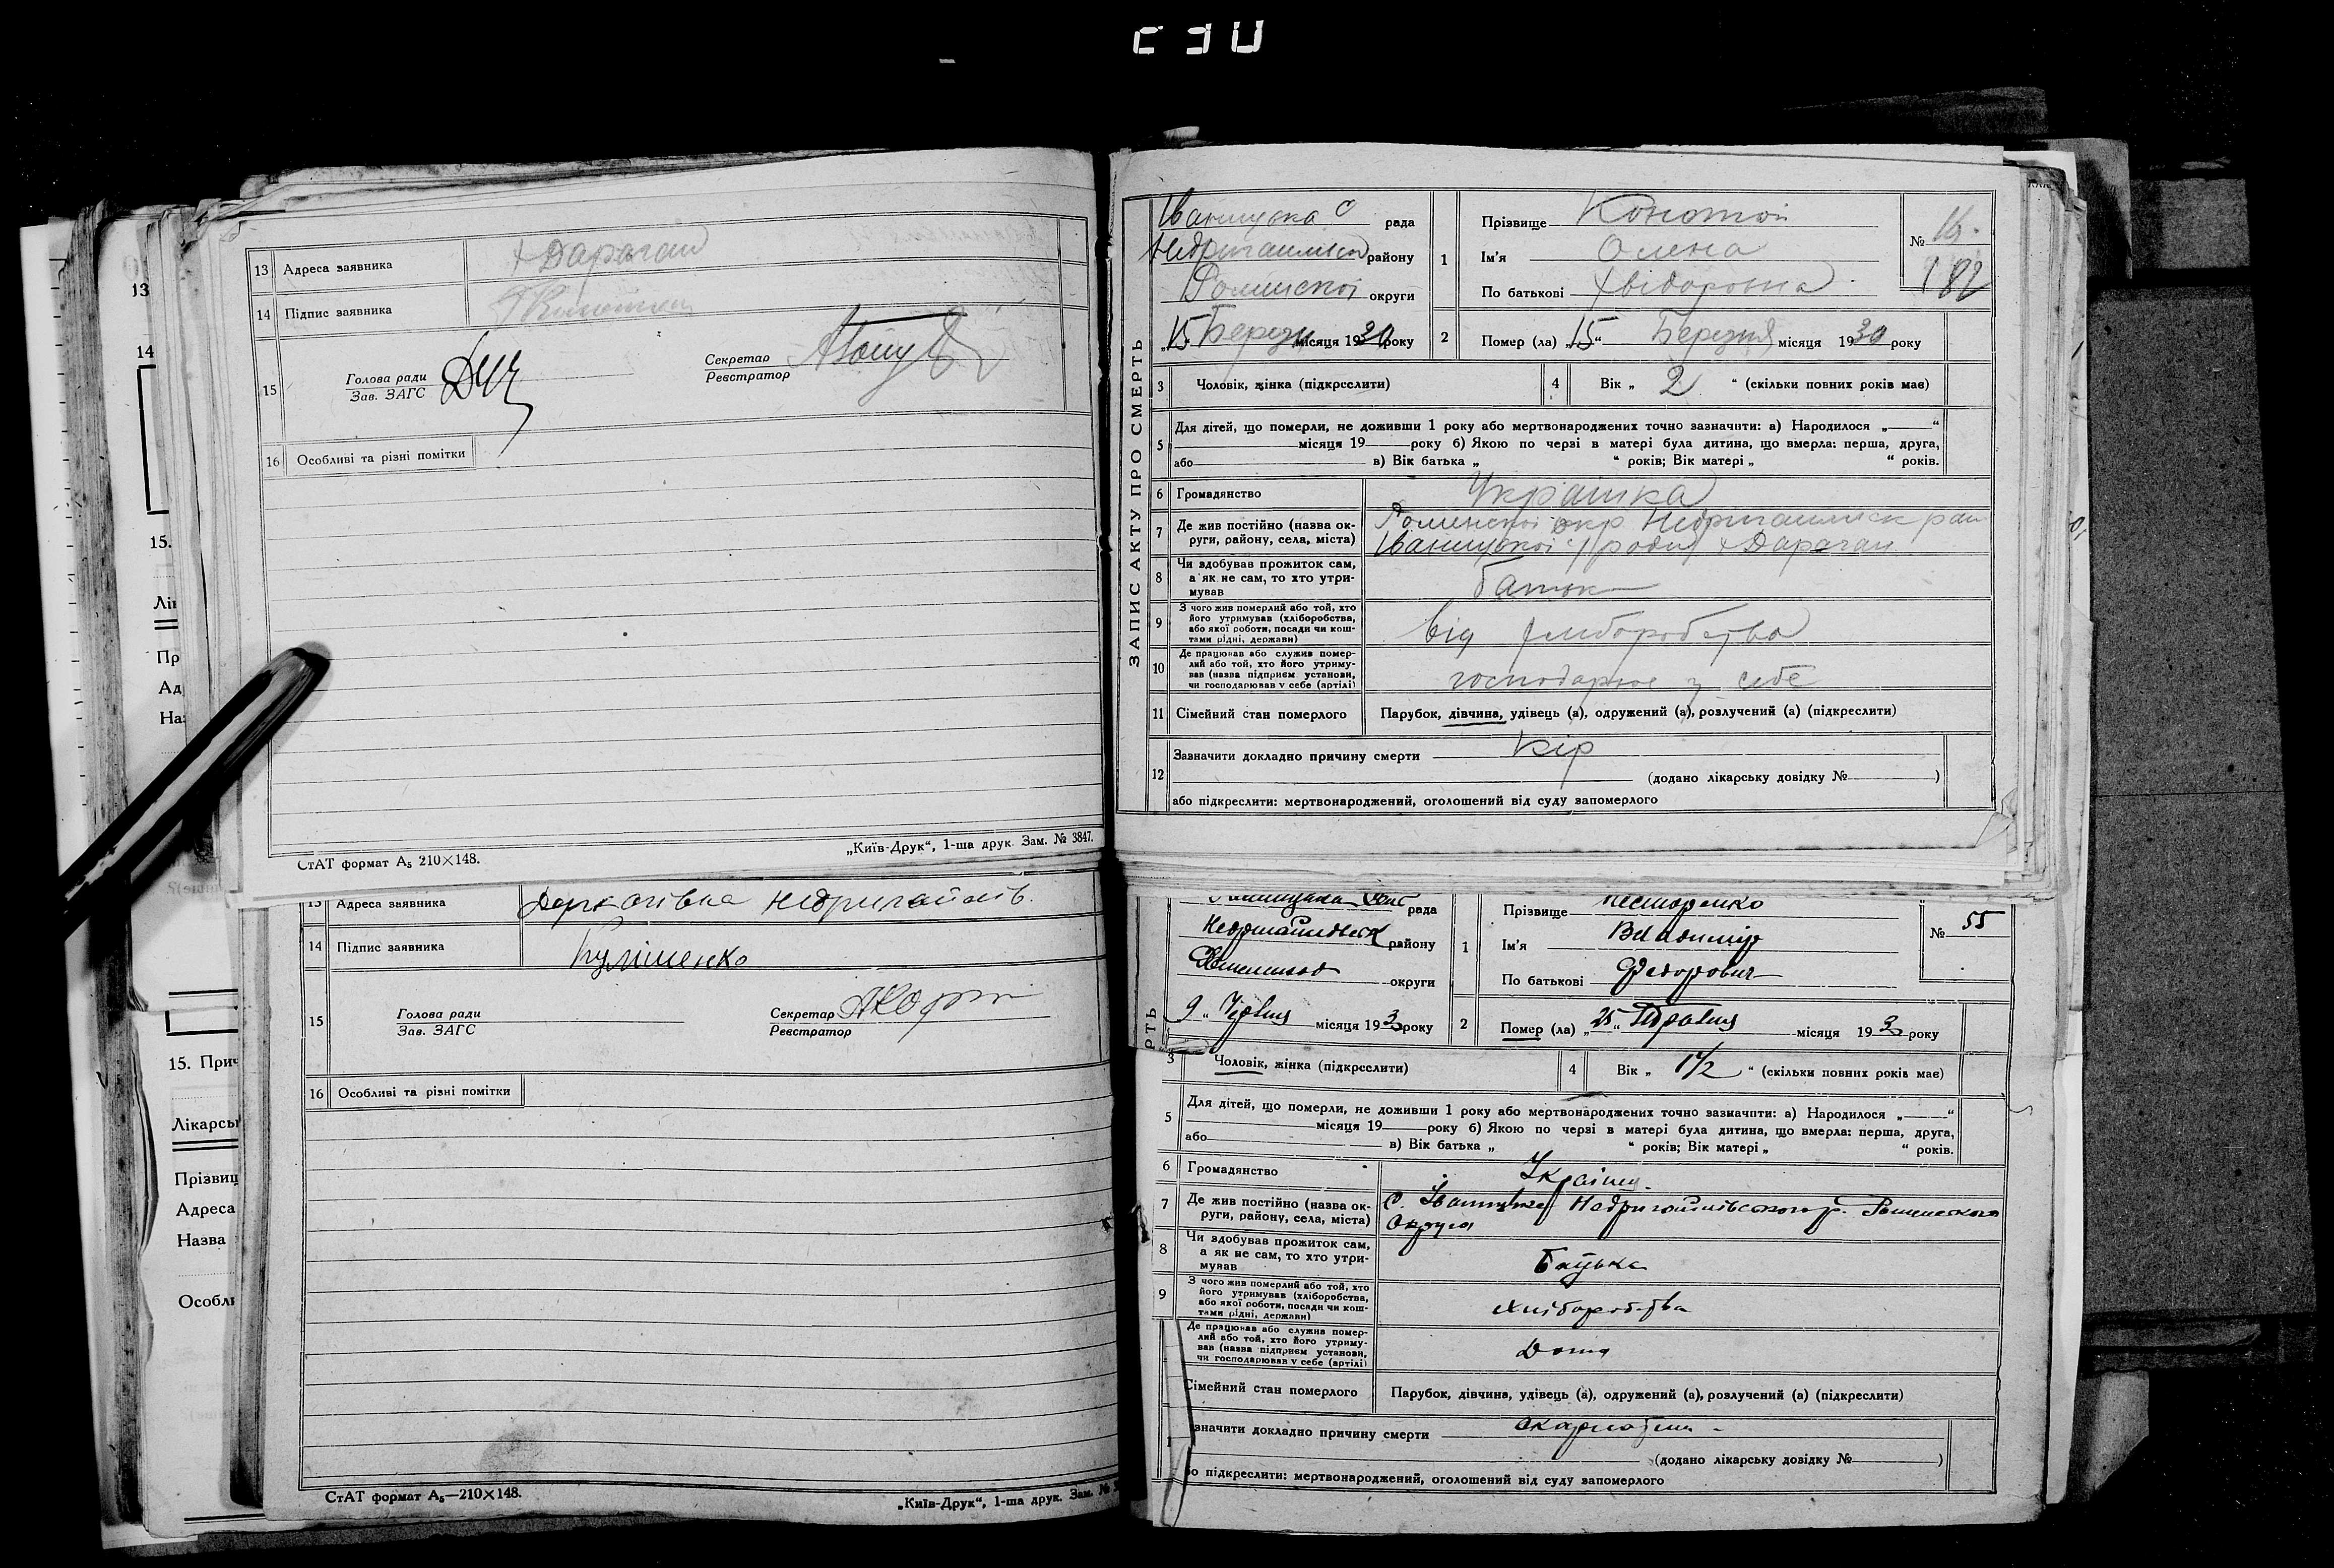 13 Адреса заявника х Дараган
14 Підпис заявника
15 Голова ради
Зав. ЗАГС
Секретар
Реєстратор
16 Особливі та різні помітки
СтАТ формат А5 210×148.
„Київ-Друк“, 1-ша друк. Зам. № 3847.
ЗАПИС АКТУ ПРО СМЕРТЬ
рада
району
Роменскої округи
„15“ Березня місяця 1930 року
1 Прізвище
Ім'я Олена
По батькові Хвідоровна
№ 16.
182
2 Помер (ла) „15“ Березня місяця 1930 року
3 Чоловік, жінка (підкреслити)
4 Вік „ 2 “ (скільки повних років має)
5 Для дітей, що померли, не доживши 1 року або мертвонароджених точно зазначити: а) Народилося „ “
місяця 19 року б) Якою по черзі в матері була дитина, що вмерла: перша, друга,
або в) Вік батька „ “ років; Вік матері „ “ років.
6 Громадянство Українка
7 Де жив постійно (назва ок-
руги, району, села, міста)
Роменскої окр
х Дараган
8 Чи здобував прожиток сам,
а як не сам, то хто утри-
мував
батьк
9 З чого жив померлий або той, хто
його утримував (хліборобства,
або якої роботи, посади чи кош-
тами рідні, держави)
від хліборобства
10 Де працював або служив помер-
лий або той, хто його утриму-
вав (назва підприєм установи,
чи господарював у себе (артілі)
господарює у себе
11 Сімейний стан померлого Парубок, дівчина, удівець (а), одружений (а), розлучений (а) (підкреслити)
12 Зазначити докладно причину смерти Кір
(додано лікарську довідку № )
або підкреслити: мертвонароджений, оголошений від суду запомерлого
13
14
15.
15. Прич
Лікарсь
Прізвищ
Адреса
Назва
Особлі
13 Адреса заявника
14 Підпис заявника Кулішенко
15 Голова ради
Зав. ЗАГС
Секретар
Реєстратор
16 Особливі та різні помітки
СтАТ формат А5—210×148.
„Київ-Друк“, 1-ша друк. Зам. №
РТЬ
рада
району
округи
9 „ Червня місяця 193 року
1 Прізвище Нестеренко
Ім'я Владимир
По батькові Федорович
№ 55
2 Помер (ла) „25“ Травня місяця 193 року
3 Чоловік, жінка (підкреслити)
4 Вік „ 1 1/2 “ (скільки повних років має)
5 Для дітей, що померли, не доживши 1 року або мертвонароджених точно зазначити: а) Народилося „ “
місяця 19 року б) Якою по черзі в матері була дитина, що вмерла: перша, друга,
або в) Вік батька „ “ років; Вік матері „ “ років.
6 Громадянство
7 Де жив постійно (назва ок-
руги, району, села, міста)
Округи
8 Чи здобував прожиток сам,
а як не сам, то хто утри-
мував
Батька
9 З чого жив померлий або той, хто
його утримував (хліборобства,
або якої роботи, посади чи кош-
тами рідні, держави)
хліборобства
Де працював або служив помер-
лий або той, хто його утриму-
вав (назва підприєм установи,
чи господарював у себе (артілі)
Дома
Сімейний стан померлого Парубок, дівчина, удівець (а), одружений (а), розлучений (а) (підкреслити)
значити докладно причину смерти
(додано лікарську довідку № )
бо підкреслити: мертвонароджений, оголошений від суду запомерлого